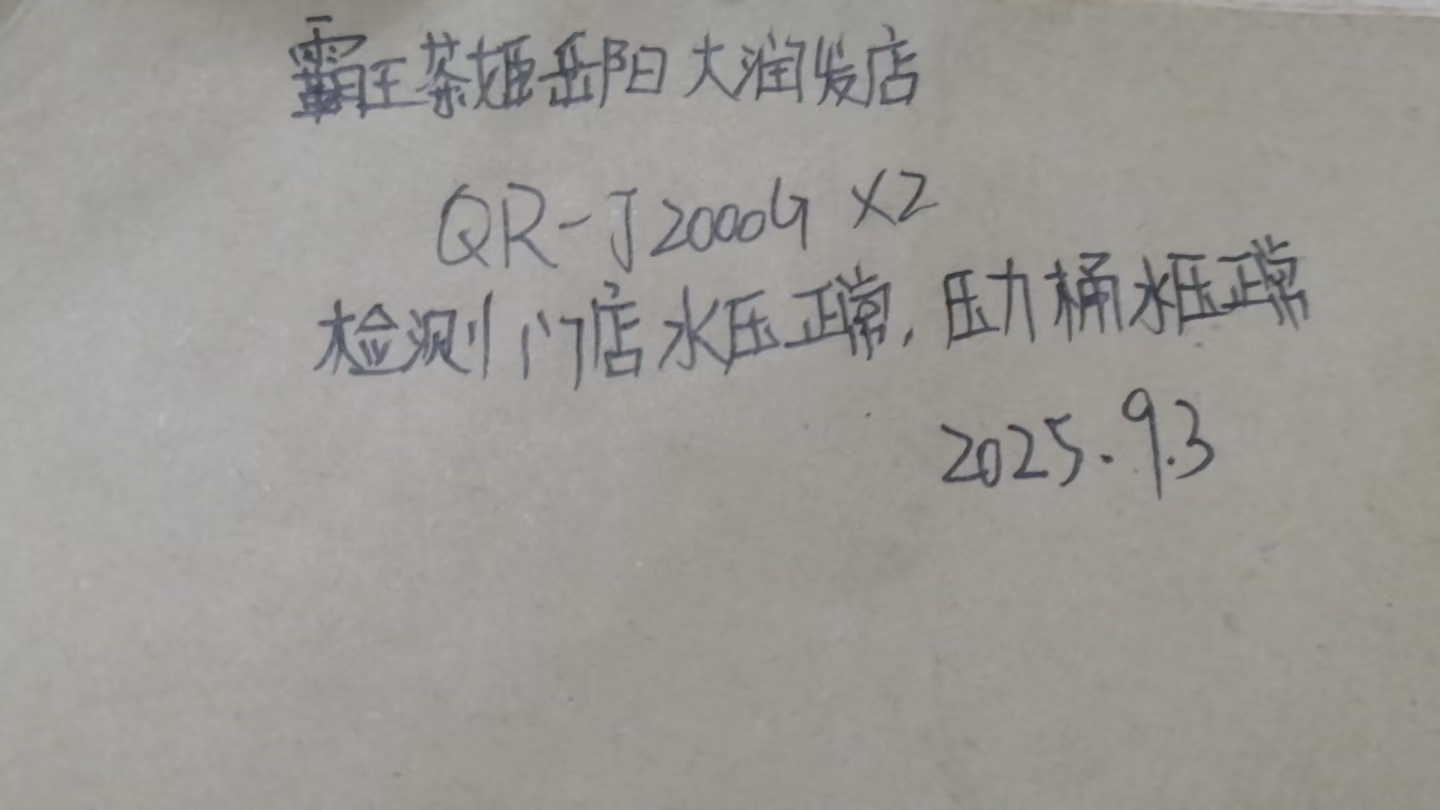 霸王茶姬岳阳大润发店
QR-J2000G X2
检测门店水压正常,压力桶水压正常
2025.9.3